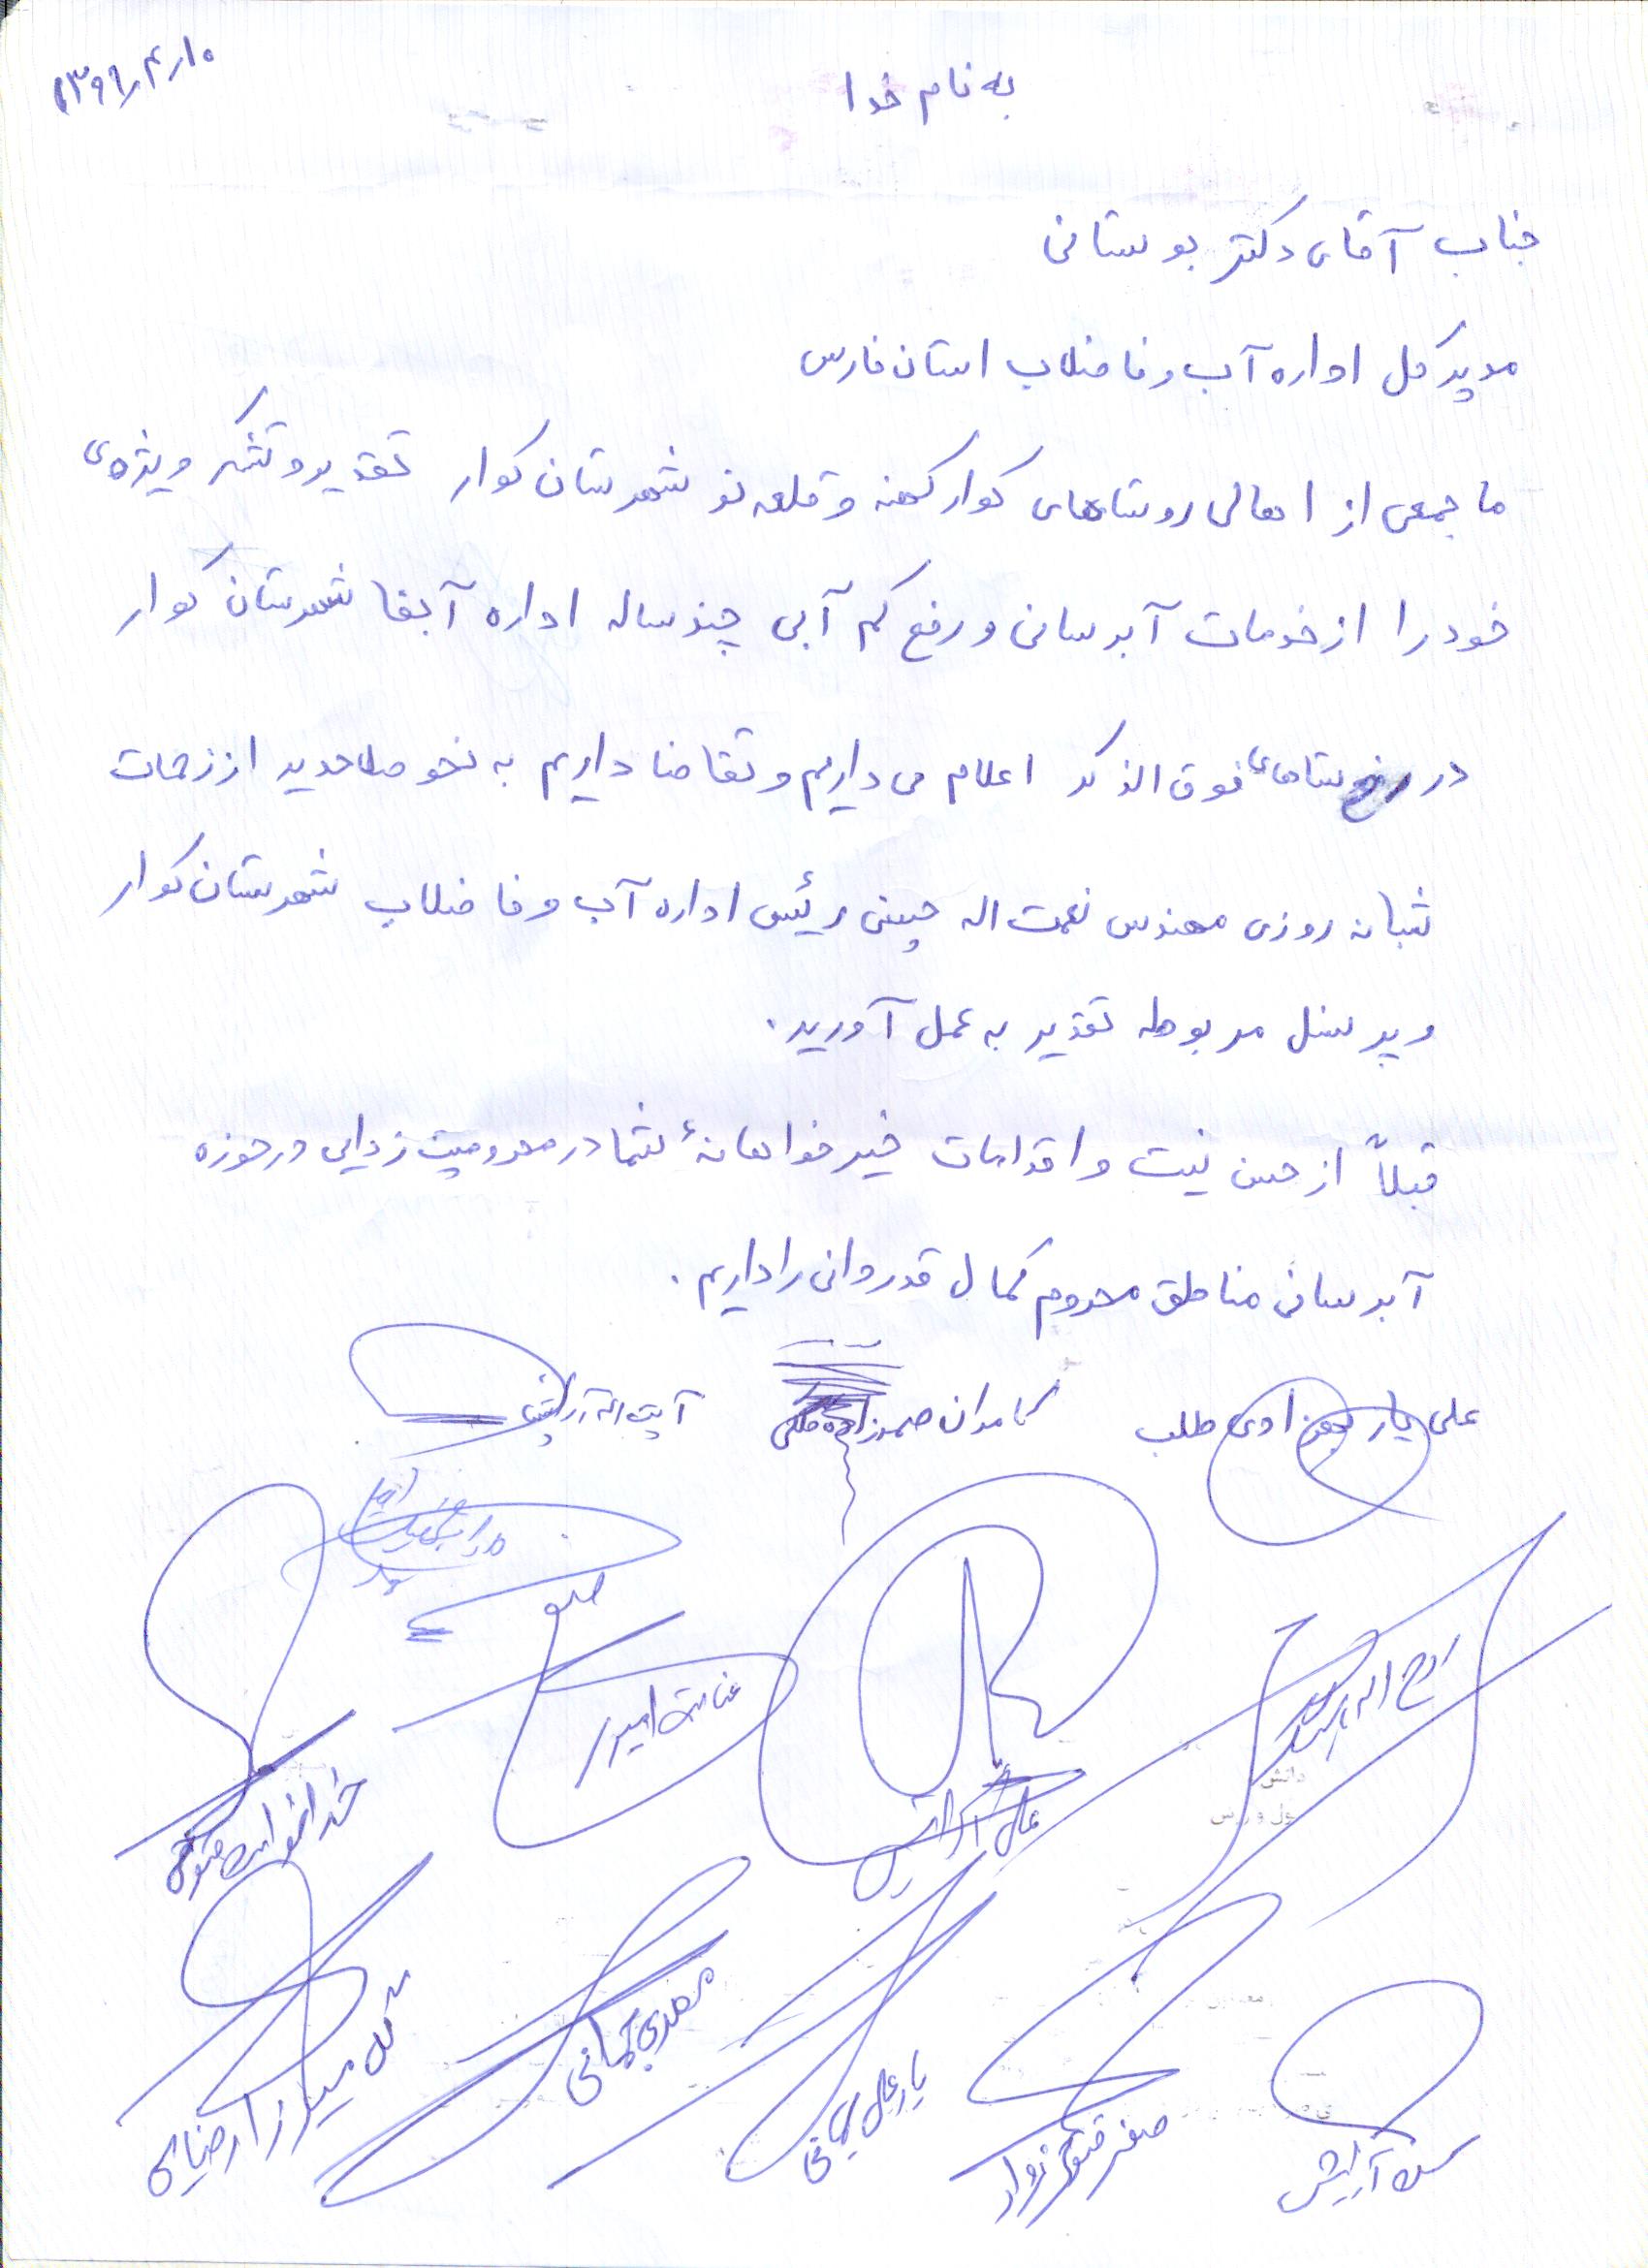 ۱۳۹۶/۴/۱۰
به نام خدا
جناب آقای دکتر بوستانی
مدیر کل اداره آب و فاضلاب استان فارس
ما جمعی از اهالی روستاهای کوار کهنه و قلعه نو شهرستان کوار تقدیر و تشکر ویژه‌ی
خود را از خدمات آبرسانی و رفع کم آبی چند ساله اداره آبفا شهرستان کوار
در روستاهای فوق الذکر اعلام می داریم و تقاضا داریم به نحو صلاحدید از زحمات
شبانه روزی مهندس نعمت اله چینی رئیس اداره آب و فاضلاب شهرستان کوار
و پرسنل مربوطه تقدیر به عمل آورید.
قبلاً از حسن نیت و اقدامات خیرخواهانهٔ شما در محرومیت زدایی در حوزه
آبرسانی مناطق محروم کمال قدردانی را داریم.
علی یار طلب کامران آیت اله
عنایت امیری
روح اله
مهدی جمانی
گل میرزا رضایی
یارعلی
صفر
آرایش